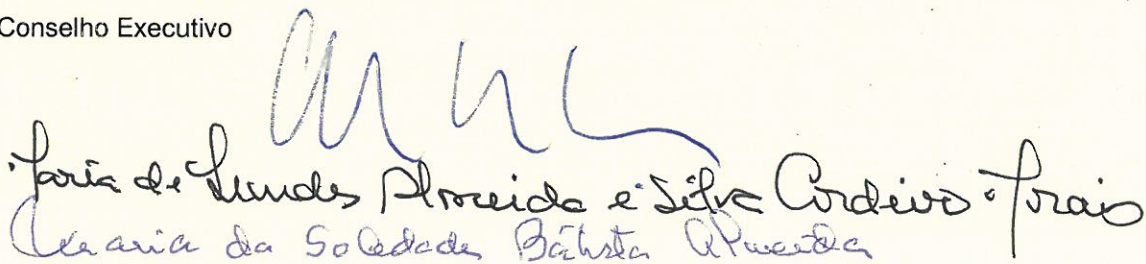 Conselho Executivo
Maria de Lurdes Almeida e Silva Cordeiro Morais
Maria da Soledade Batista Almeida